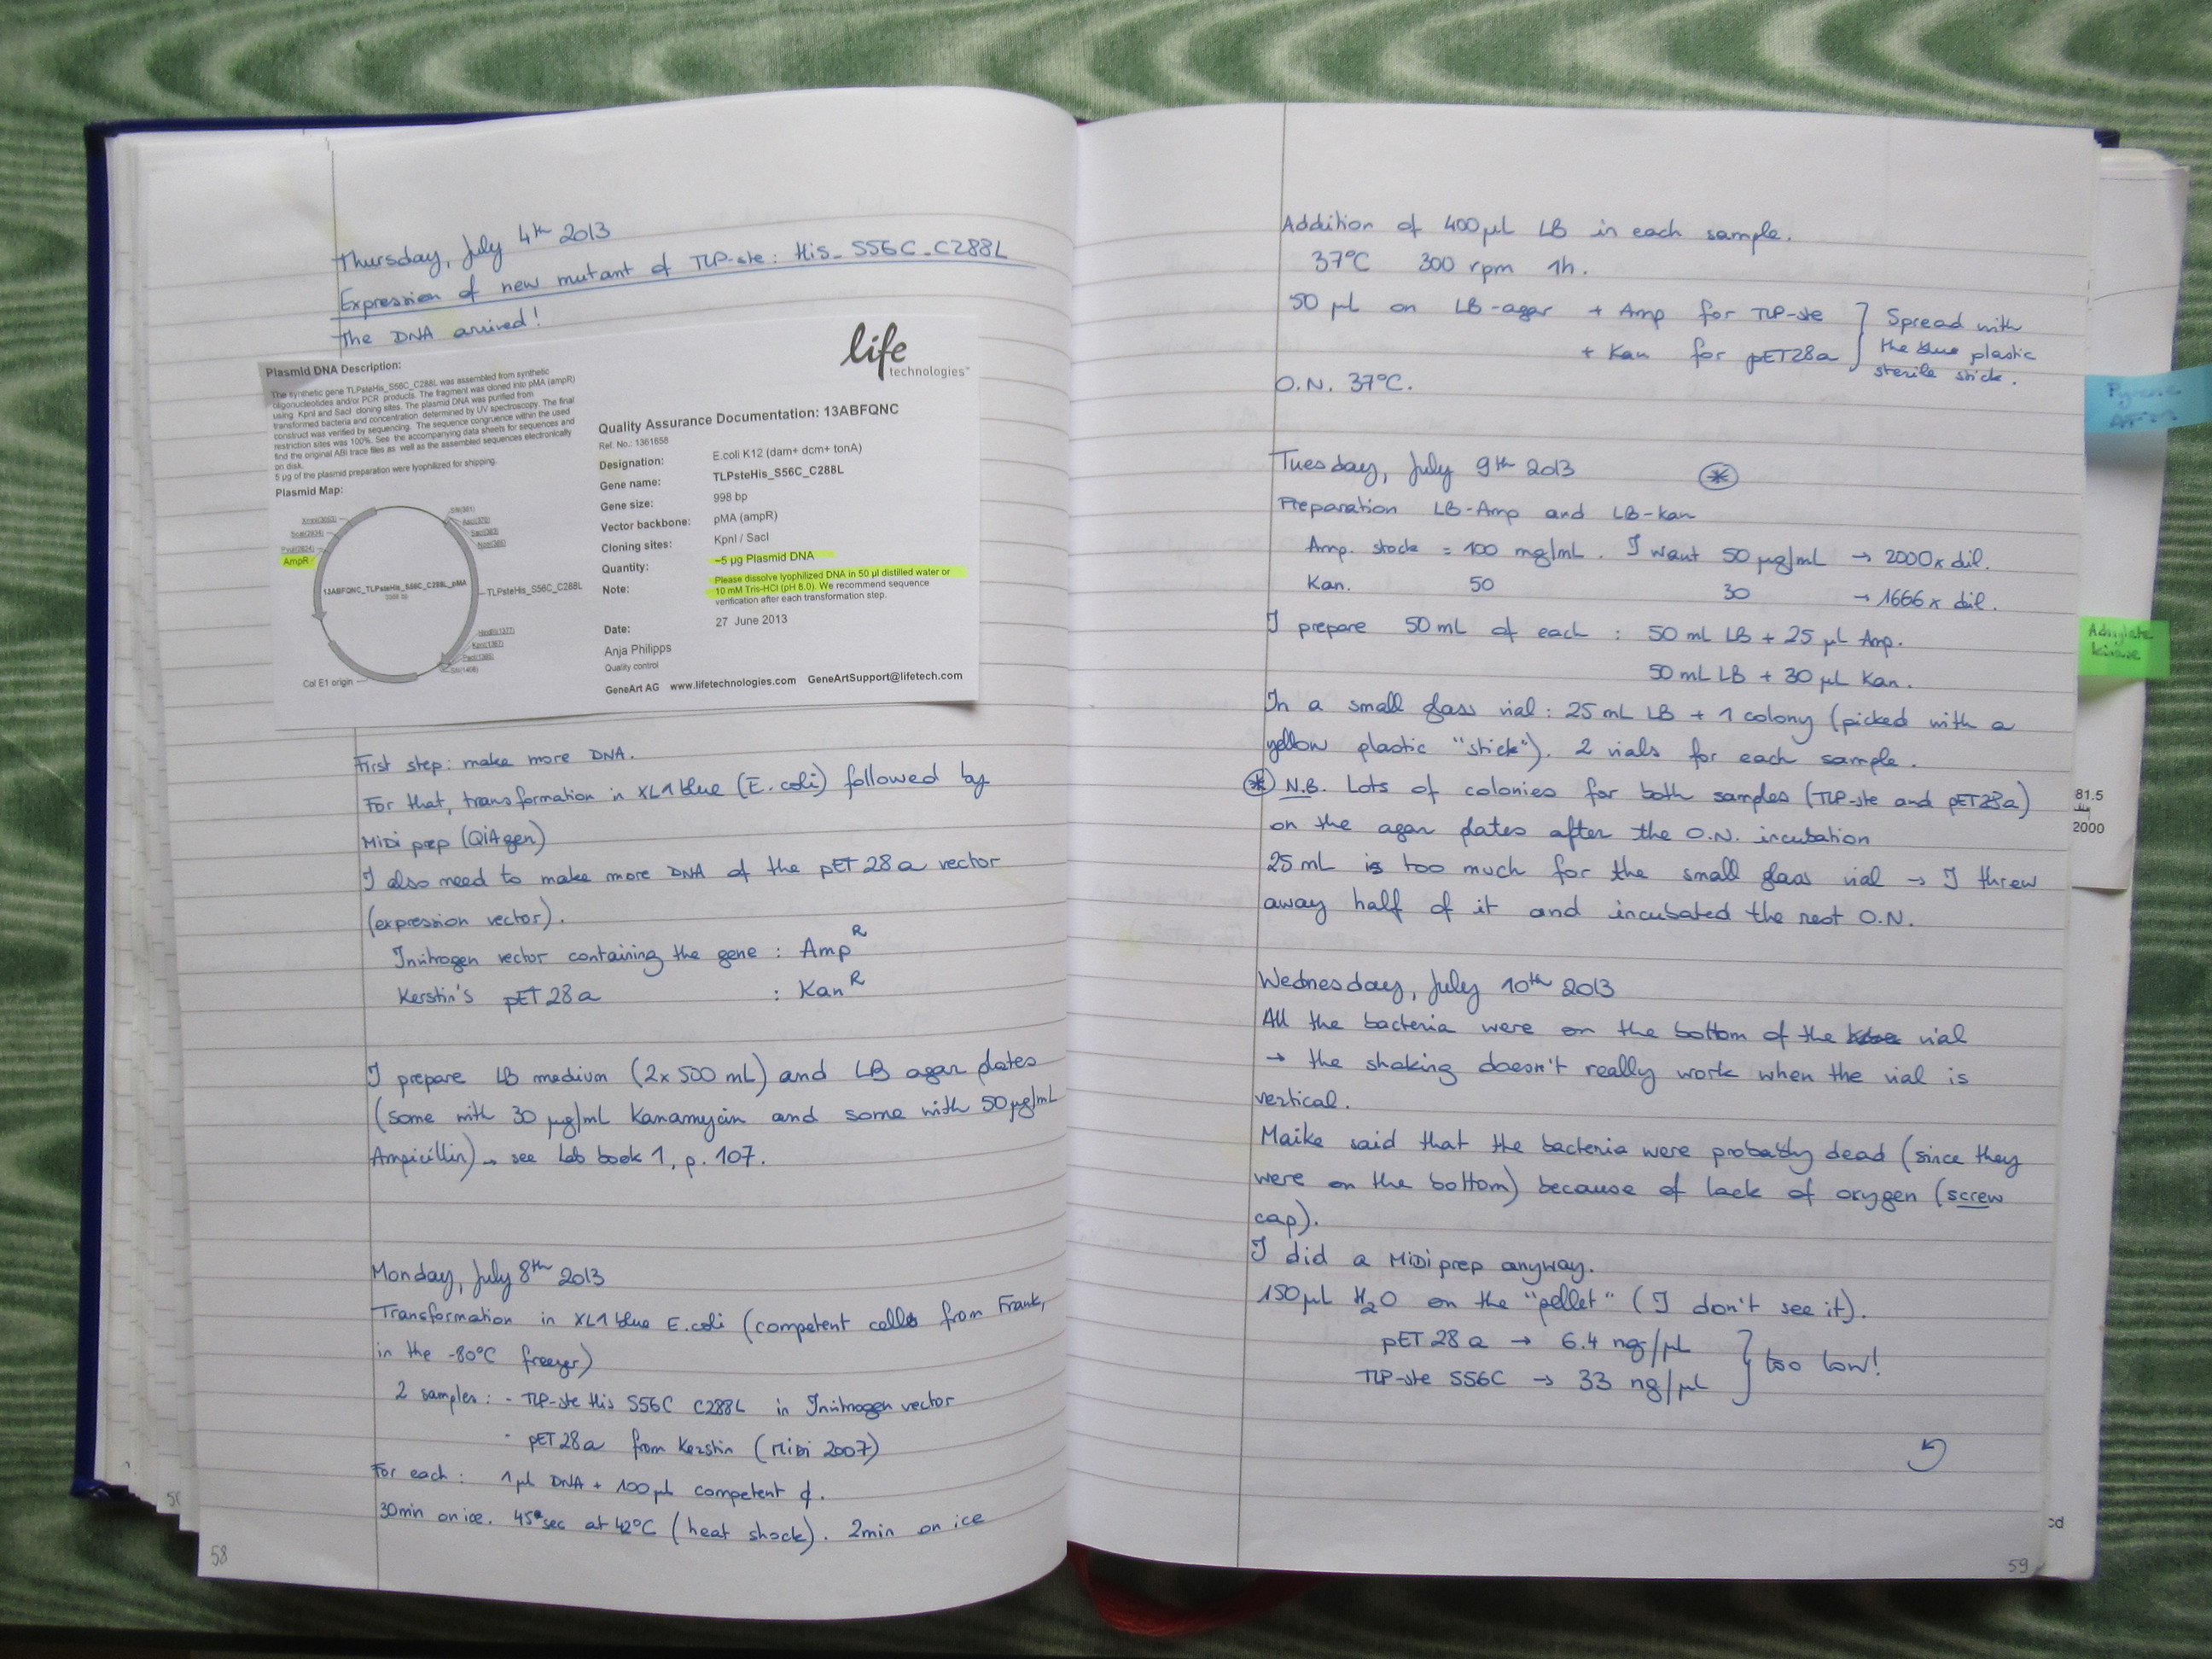 Thursday, July 4th 2013
Expression of new mutant of TLP-ste: His_S56C_C288L
The DNA arrived!
life
technologies
Plasmid DNA Description:
The synthetic gene TLPsteHis_S56C_C288L was assembled from synthetic
oligonucleotides and/or PCR products. The fragment was cloned into pMA (ampR)
using KpnI and SacI cloning sites. The plasmid DNA was purified from
transformed bacteria and concentration determined by UV spectroscopy. The final
construct was verified by sequencing. The sequence congruence within the used
restriction sites was 100%. See the accompanying data sheets for sequences and
find the original ABI trace files as well as the assembled sequences electronically
on disk.
5 µg of the plasmid preparation were lyophilized for shipping.
Plasmid Map:
AmpR
13ABFQNC_TLPsteHis_S56C_C288L_pMA
TLPsteHis_S56C_C288L
Col E1 origin
Quality Assurance Documentation: 13ABFQNC
Ref. No.: 1361658
Designation: E.coli K12 (dam+ dcm+ tonA)
Gene name: TLPsteHis_S56C_C288L
Gene size: 998 bp
Vector backbone: pMA (ampR)
Cloning sites: KpnI / SacI
Quantity: ~5 µg Plasmid DNA
Note: Please dissolve lyophilized DNA in 50 µl distilled water or
10 mM Tris-HCl (pH 8.0). We recommend sequence
verification after each transformation step.
Date: 27 June 2013
Anja Philipps
Quality control
GeneArt AG www.lifetechnologies.com GeneArtSupport@lifetech.com
First step: make more DNA.
For that, transformation in XL1 blue (E. coli) followed by
MiDi prep (QiAgen)
I also need to make more DNA of the pET 28 a vector
(expression vector).
Invitrogen vector containing the gene : Amp R
Kerstin's pET 28 a : Kan R
I prepare LB medium (2x 500 mL) and LB agar plates
(some with 30 µg/mL Kanamycin and some with 50 µg/mL
Ampicillin) → see Lab book 1, p. 107.
Monday, July 8th 2013
Transformation in XL1 blue E.coli (competent cells from Frank,
in the -80°C freezer)
2 samples: - TLP-ste His S56C C288L in Invitrogen vector
- pET 28 a from Kerstin (MiDi 2007)
For each: 1 µL DNA + 100 µL competent ¢.
30min on ice. 45 sec at 42°C (heat shock). 2min on ice
58
Addition of 400 µL LB in each sample.
37°C 300 rpm 1h.
50 µL on LB-agar + Amp for TLP-ste } Spread with
+ Kan for pET28a } the blue plastic
sterile stick.
O.N. 37°C.
Tuesday, July 9th 2013 *
Preparation LB-Amp and LB-Kan
Amp. stock = 100 mg/mL. I want 50 µg/mL → 2000x dil.
Kan. 50 30 → 1666x dil.
I prepare 50 mL of each : 50 mL LB + 25 µL Amp.
50 mL LB + 30 µL Kan.
In a small glass vial: 25 mL LB + 1 colony (picked with a
yellow plastic "stick"). 2 vials for each sample.
* N.B. Lots of colonies for both samples (TLP-ste and pET28a)
on the agar plates after the O.N. incubation
25 mL is too much for the small glass vial → I threw
away half of it and incubated the rest O.N.
Wednesday, July 10th 2013
All the bacteria were on the bottom of the vial
→ the shaking doesn't really work when the vial is
vertical.
Maike said that the bacteria were probably dead (since they
were on the bottom) because of lack of oxygen (screw
cap).
I did a MiDi prep anyway.
150 µL H2O on the "pellet" (I don't see it).
pET 28 a → 6.4 ng/µL } too low!
TLP-ste S56C → 33 ng/µL
59
Adenylate
kinase
81.5
2000
cd